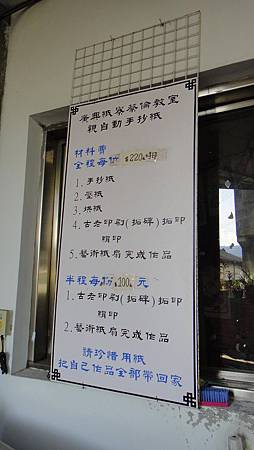 廣興紙寮蔡倫教室
親自動手抄紙
材料費
全程每份$220.
1. 手抄紙
2. 壓紙
3. 烘紙
4. 古老印刷(拓碑)拓印
5. 藝術紙扇完成作品
半程每份$200.元
1. 古老印刷(拓碑)拓印
2. 藝術紙扇完成作品
請珍惜用紙
把自己作品全部帶回家